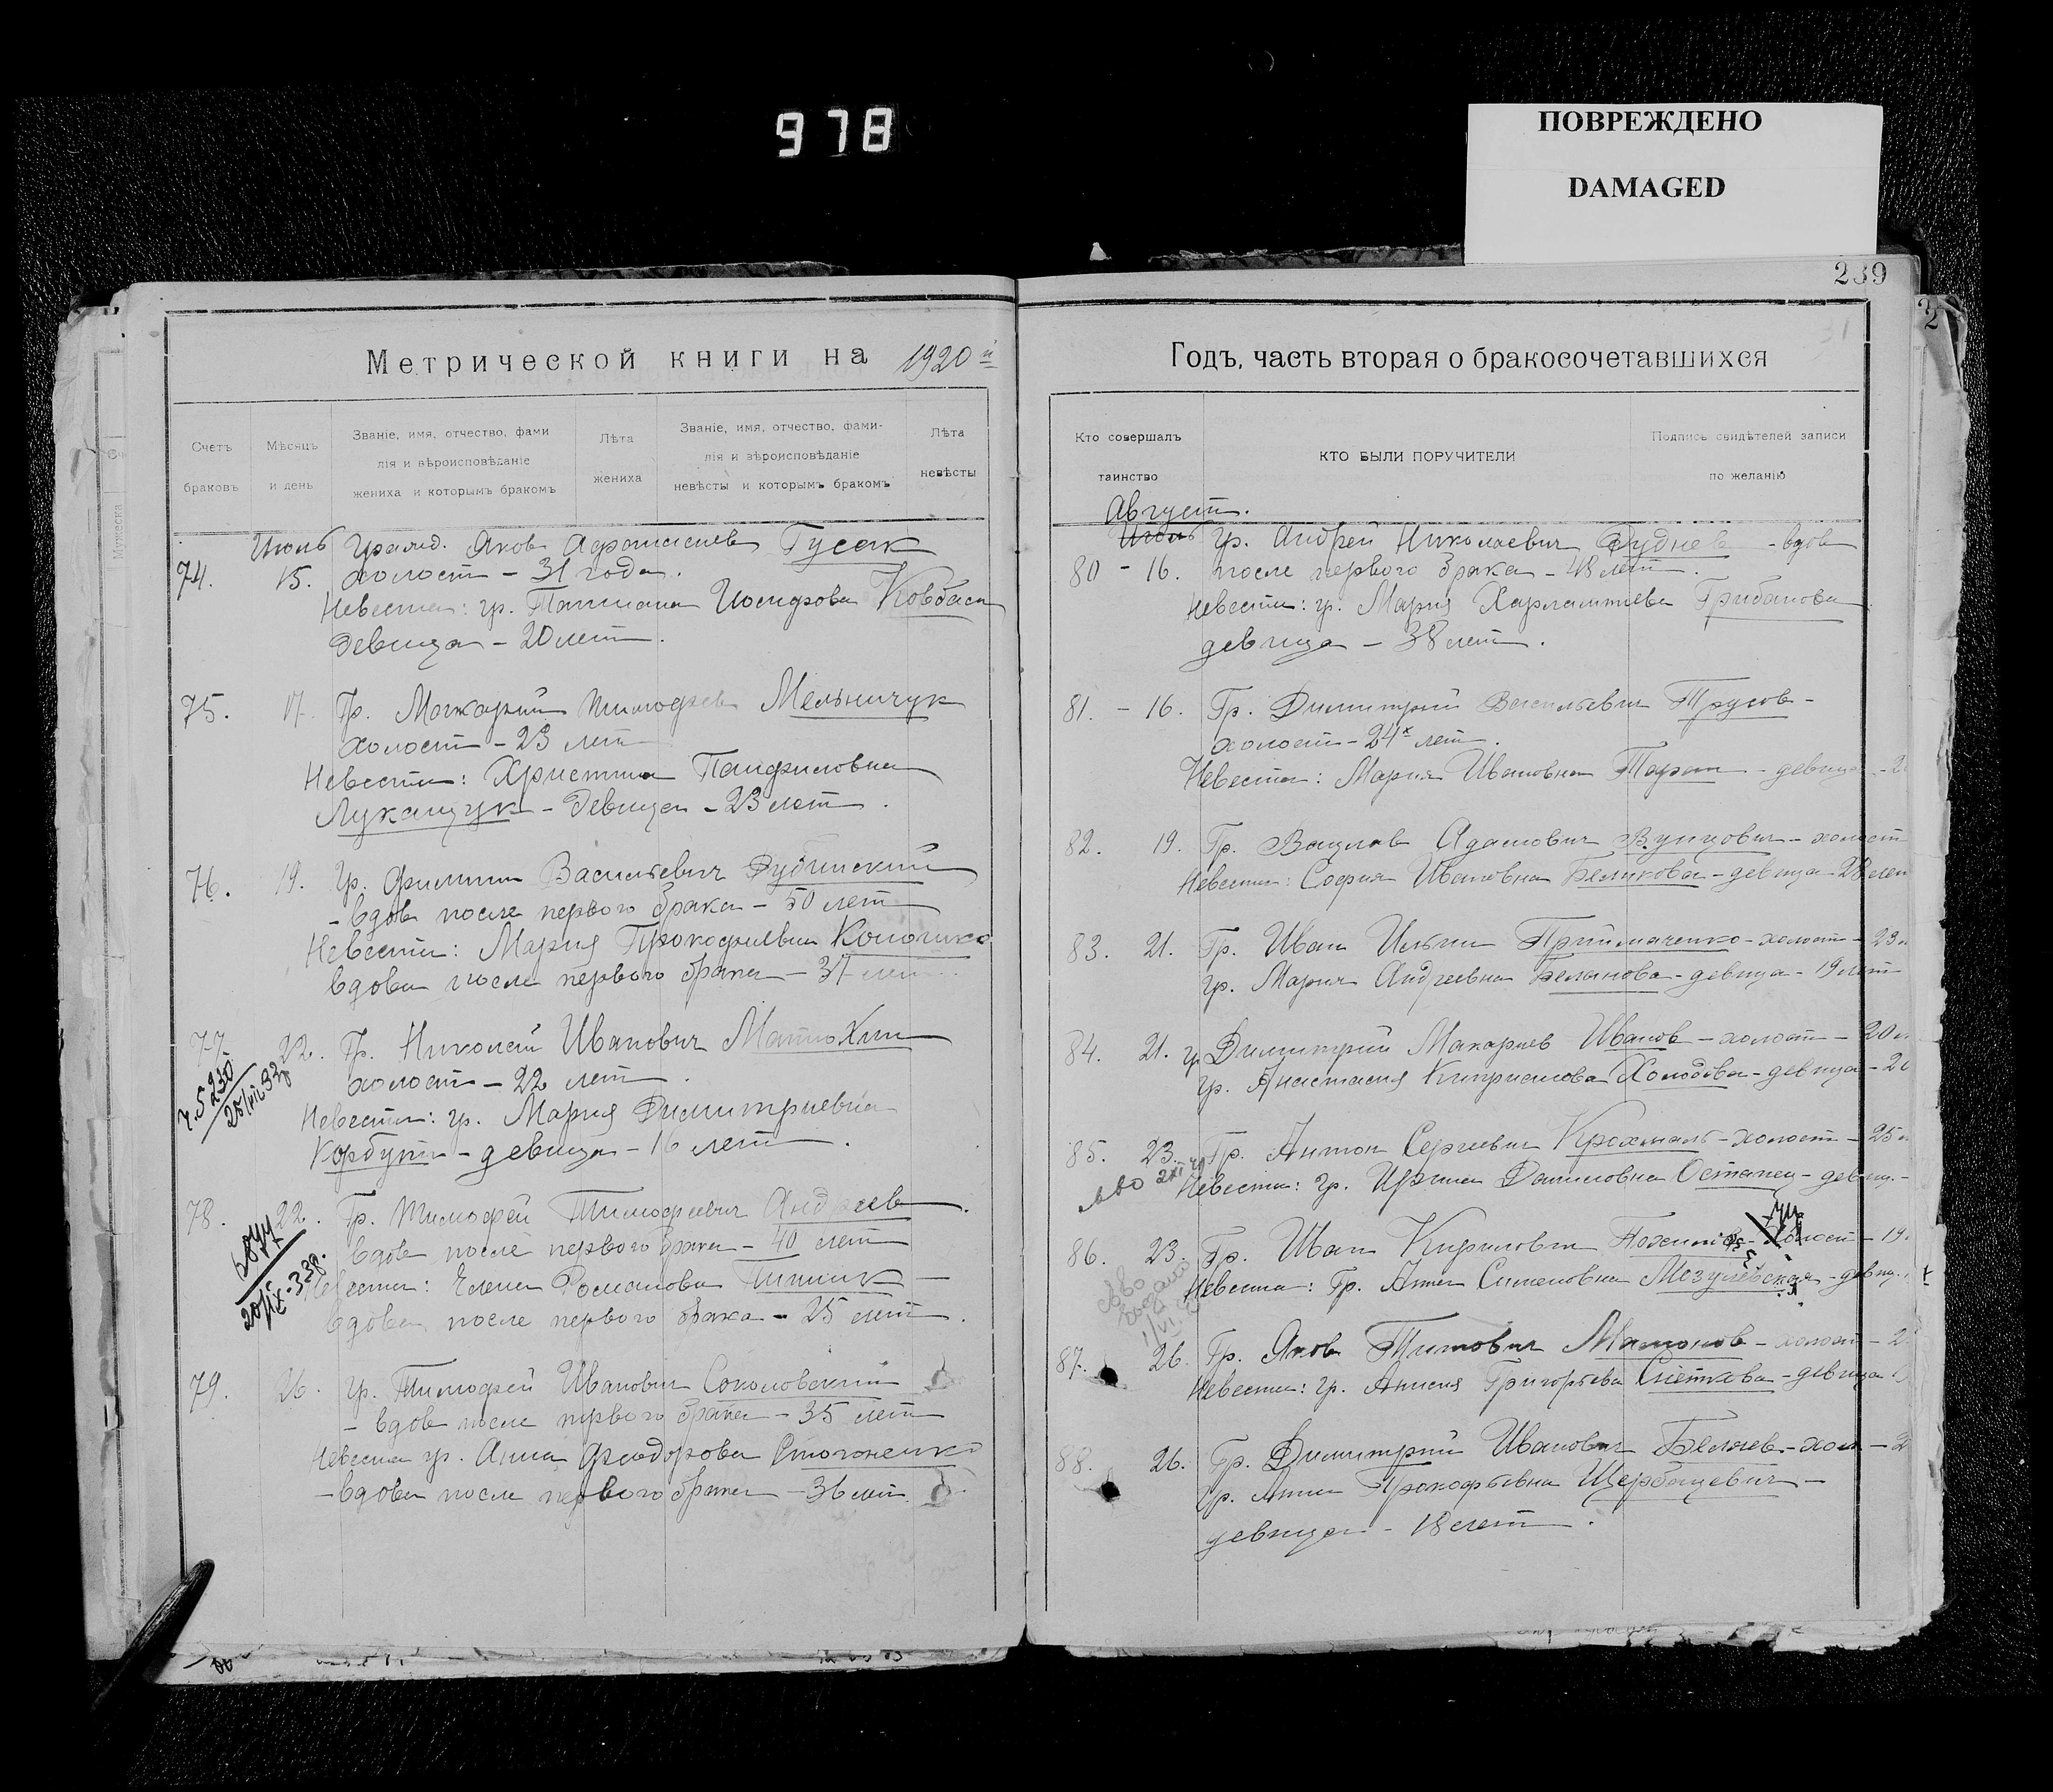 978
ПОВРЕЖДЕНО
DAMAGED
239
Метрической книги на 1920й
Счетъ браковъ
Мѣсяцъ и день
Званіе, имя, отчество, фами
лія и вѣроисповѣданіе
жениха и которымъ бракомъ
Лѣта жениха
Званіе, имя, отчество, фами-
лія и вѣроисповѣданіе
невѣсты и которымъ бракомъ
Лѣта невѣсты
Июль Гражд. Яков Афанасиев Гусак
74. 15. холост - 31 года.
Невеста: гр. Татиана Иосифова Ковбаса
девица - 20 лет.
75. 17. Гр. Тимофеев Мельничук
холост - 23 лет
Невеста: Христина Панфиловна
Лукащук - девица - 23 лет.
76. 19. Гр. Филипп Васильевич Дубинский
- вдов после первого брака - 50 лет
Невеста: Мария Прокофиевна
вдова после первого брака - 37 лет.
77. 22. Гр. Николай Иванович Матюхин
холост - 22 лет.
Невеста: гр. Мария Димитриевна
Корбут - девица - 16 лет.
78. 22. Гр. Тимофей Тимофеевич Андреев.
вдов после первого брака - 40 лет
Невеста: Елена Романова
вдова после первого брака - 25 лет.
79. 26. Гр. Тимофей Иванович Соколовский
- вдов после первого брака - 35 лет
Невеста гр. Анна Феодорова
- вдова после первого брака - 36 лет.
Годъ, часть вторая о бракосочетавшихся
Кто совершалъ
таинство
КТО БЫЛИ ПОРУЧИТЕЛИ
Подпись свидѣтелей записи
по желанію
Август.
Июль Гр. Андрей Николаевич Руднев - вдов
80 - 16. после первого брака - 48 лет.
Невеста: гр. Мария Харлампиева Грибанова
девица - 38 лет.
81. - 16. Гр. Димитрий Васильевич Трусов -
холост - 24х лет.
Невеста: Мария Ивановна Таран - девица - 2
82. 19. Гр. Вацлав Адамович - холост
Невеста: София Ивановна Беликова - девица - 28 лет
83. 21. Гр. Иван Ильин Прийтаченко - холост - 23
гр. Мария Андреевна Беланова - девица - 19 лет
84. 21. гр Димитрий Макариев Иванов - холост - 20
гр. Анастасия Киприанова Холодова - девица - 20
85. 23. Гр. Антон Сергиевич Крохмаль - холост - 25
Невеста: гр. Ирина Даниловна Останец - девиц. -
86. 23. Гр. Иван Кирилович - холост - 19.
Невеста: Гр. Анна Симеоновна - девиц.
87. 26. Гр. Яков Титович Мамонов - холост - 2
Невеста: гр. Анисия Григорьева - девица
88. 26. Гр. Димитрий Иванович Беляев - хол - 2
Гр. Анна Прокофьевна Щербацевич -
девица - 18 лет.